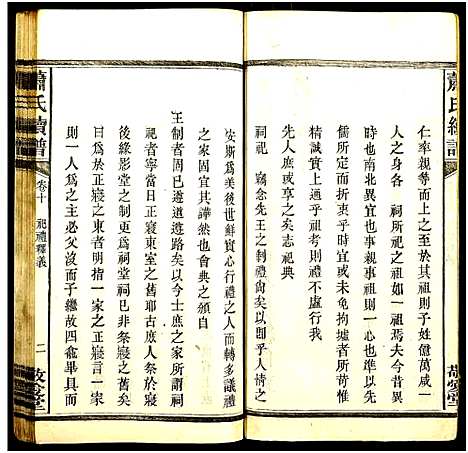 蕭氏續譜
仁率親等而上其祖則子姓億萬咸一
人之身各　祠所祀之祖如一祖焉夫今昔異
時也南北異宜也事親事祖則一心也準以先
儒所定而折衷乎時或未免拘墟者所倘
精誠實以上過乎祖考則禮不虛行我
先人庶或享之矣志祀典
祠祀　竊念先王之制禮尚矣以卽乎人情之
敬愛堂
安斯爲美後世鮮實心行禮之人而轉多議禮
之家固宜其譁然也會典之頒自
王制者甯已遵道遵路矣以今士庶之家所謂祠
祀者寧當日正寢東室之舊耶古庶人祭於寢
後緣影堂之制更爲祠堂祠已非祭寢之舊矣
曰某爲於正寢之東者明指一家之正寢言一家
則一人爲之主必父沒而子繼故四龕畢具而
蕭氏續譜
卷十
祀禮釋義
二
敬愛堂